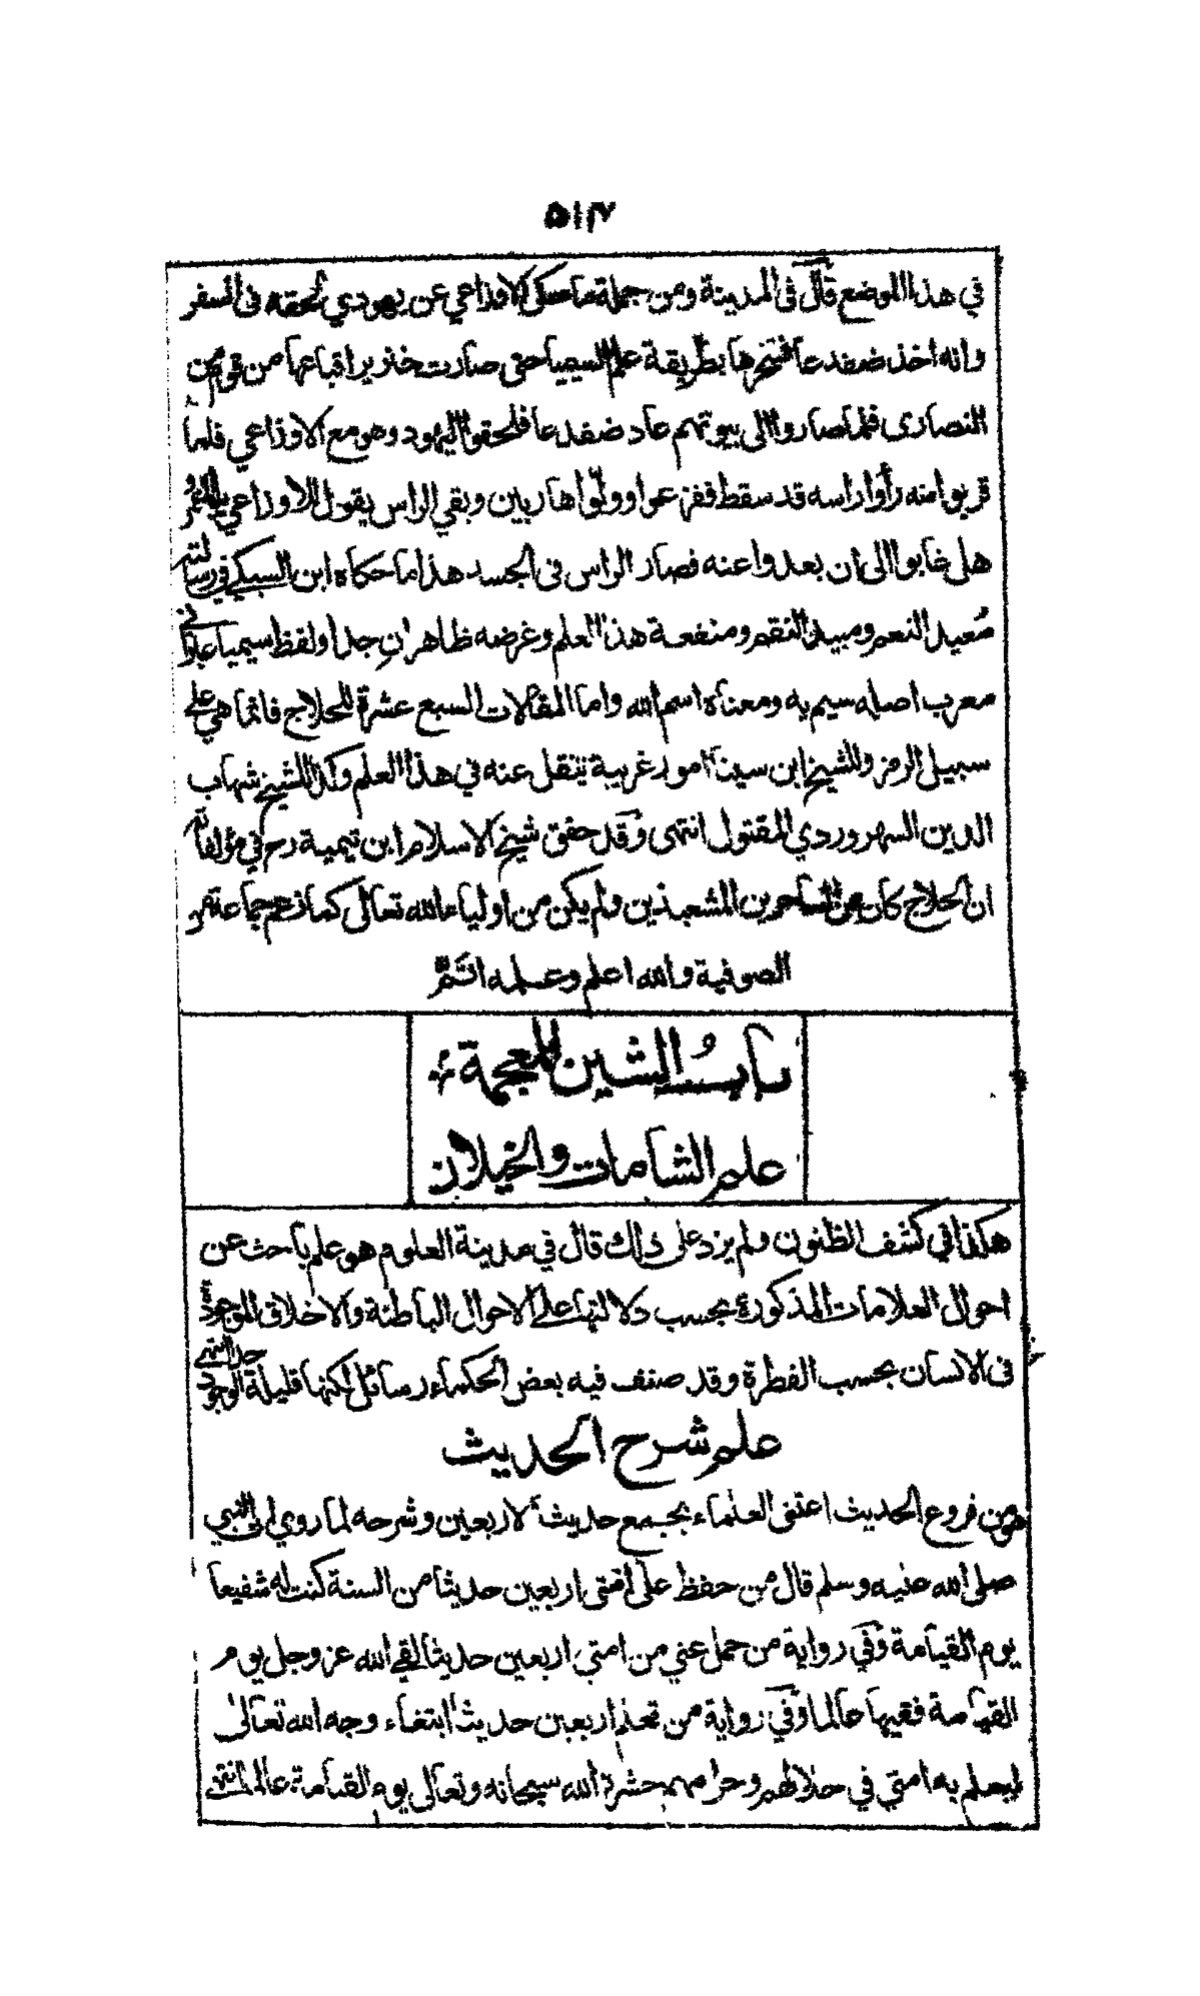 ۵۱۷
في هذا الموضع قال في المدينة ومن جملة ما حكى الاوزاعي عن يهودي لحقه في السفر
وانه اخذ ضفدعا فسخرها بطريقة علم السيميا حتى صارت خنزيرا فباعها من قوم من
النصارى فلما صاروا الى بيوتهم عاد ضفدعا فلحقوا اليهود وهو مع الاوزاعي فلما
قربوا منه رأوا راسه قد سقط ففزعوا وولوا هاربين وبقي الراس يقول للاوزاعي يا ابا عمرو
هل غابوا الى ان بعدوا عنه فصار الراس في الجسد هذا ما حكاه ابن السبكي في رسالته
معيد النعم ومبيد النقم ومنفعة هذا العلم وغرضه ظاهران جدا ولفظ سيميا عبراني
معرب اصله سيم يه ومعناه اسم الله واما المقالات السبع عشرة للحلاج فانما هي على
سبيل الرمز وللشيخ ابن سينا امور غريبة تنقل عنه في هذا العلم وكذا للشيخ شهاب
الدين السهروردي المقتول انتهى وقد حقق شيخ الاسلام ابن تيمية رح في مؤلفاته
ان الحلاج كان من الساحرين المشعبذين ولم يكن من اولياء الله تعالى كما زعم جماعة من
الصوفية والله اعلم وعلمه اتم
باب الشين المعجمة
علم الشامات والخيلان
هكذا في كشف الظنون ولم يزد على ذلك قال في مدينة العلوم هو علم باحث عن
احوال العلامات المذكورة بحسب دلالتها على الاحوال الباطنة والاخلاق الموجودة
في الانسان بحسب الفطرة وقد صنف فيه بعض الحكماء رسائل لكنها قليلة الوجود جدا انتهى
علم شرح الحديث
من فروع الحديث اعتنى العلماء بجمع حديث الاربعين وشرحه لما روي ان النبي
صلى الله عليه وسلم قال من حفظ على امتي اربعين حديثا من السنة كنت له شفيعا
يوم القيامة وفي رواية من حمل عني من امتي اربعين حديثا لقي الله عز وجل يوم
القيامة فقيها عالما وفي رواية من تعلم اربعين حديثا ابتغاء وجه الله تعالى
ليعلم به امتي في حلالهم وحرامهم حشره الله سبحانه وتعالى يوم القيامة عالما انتهى